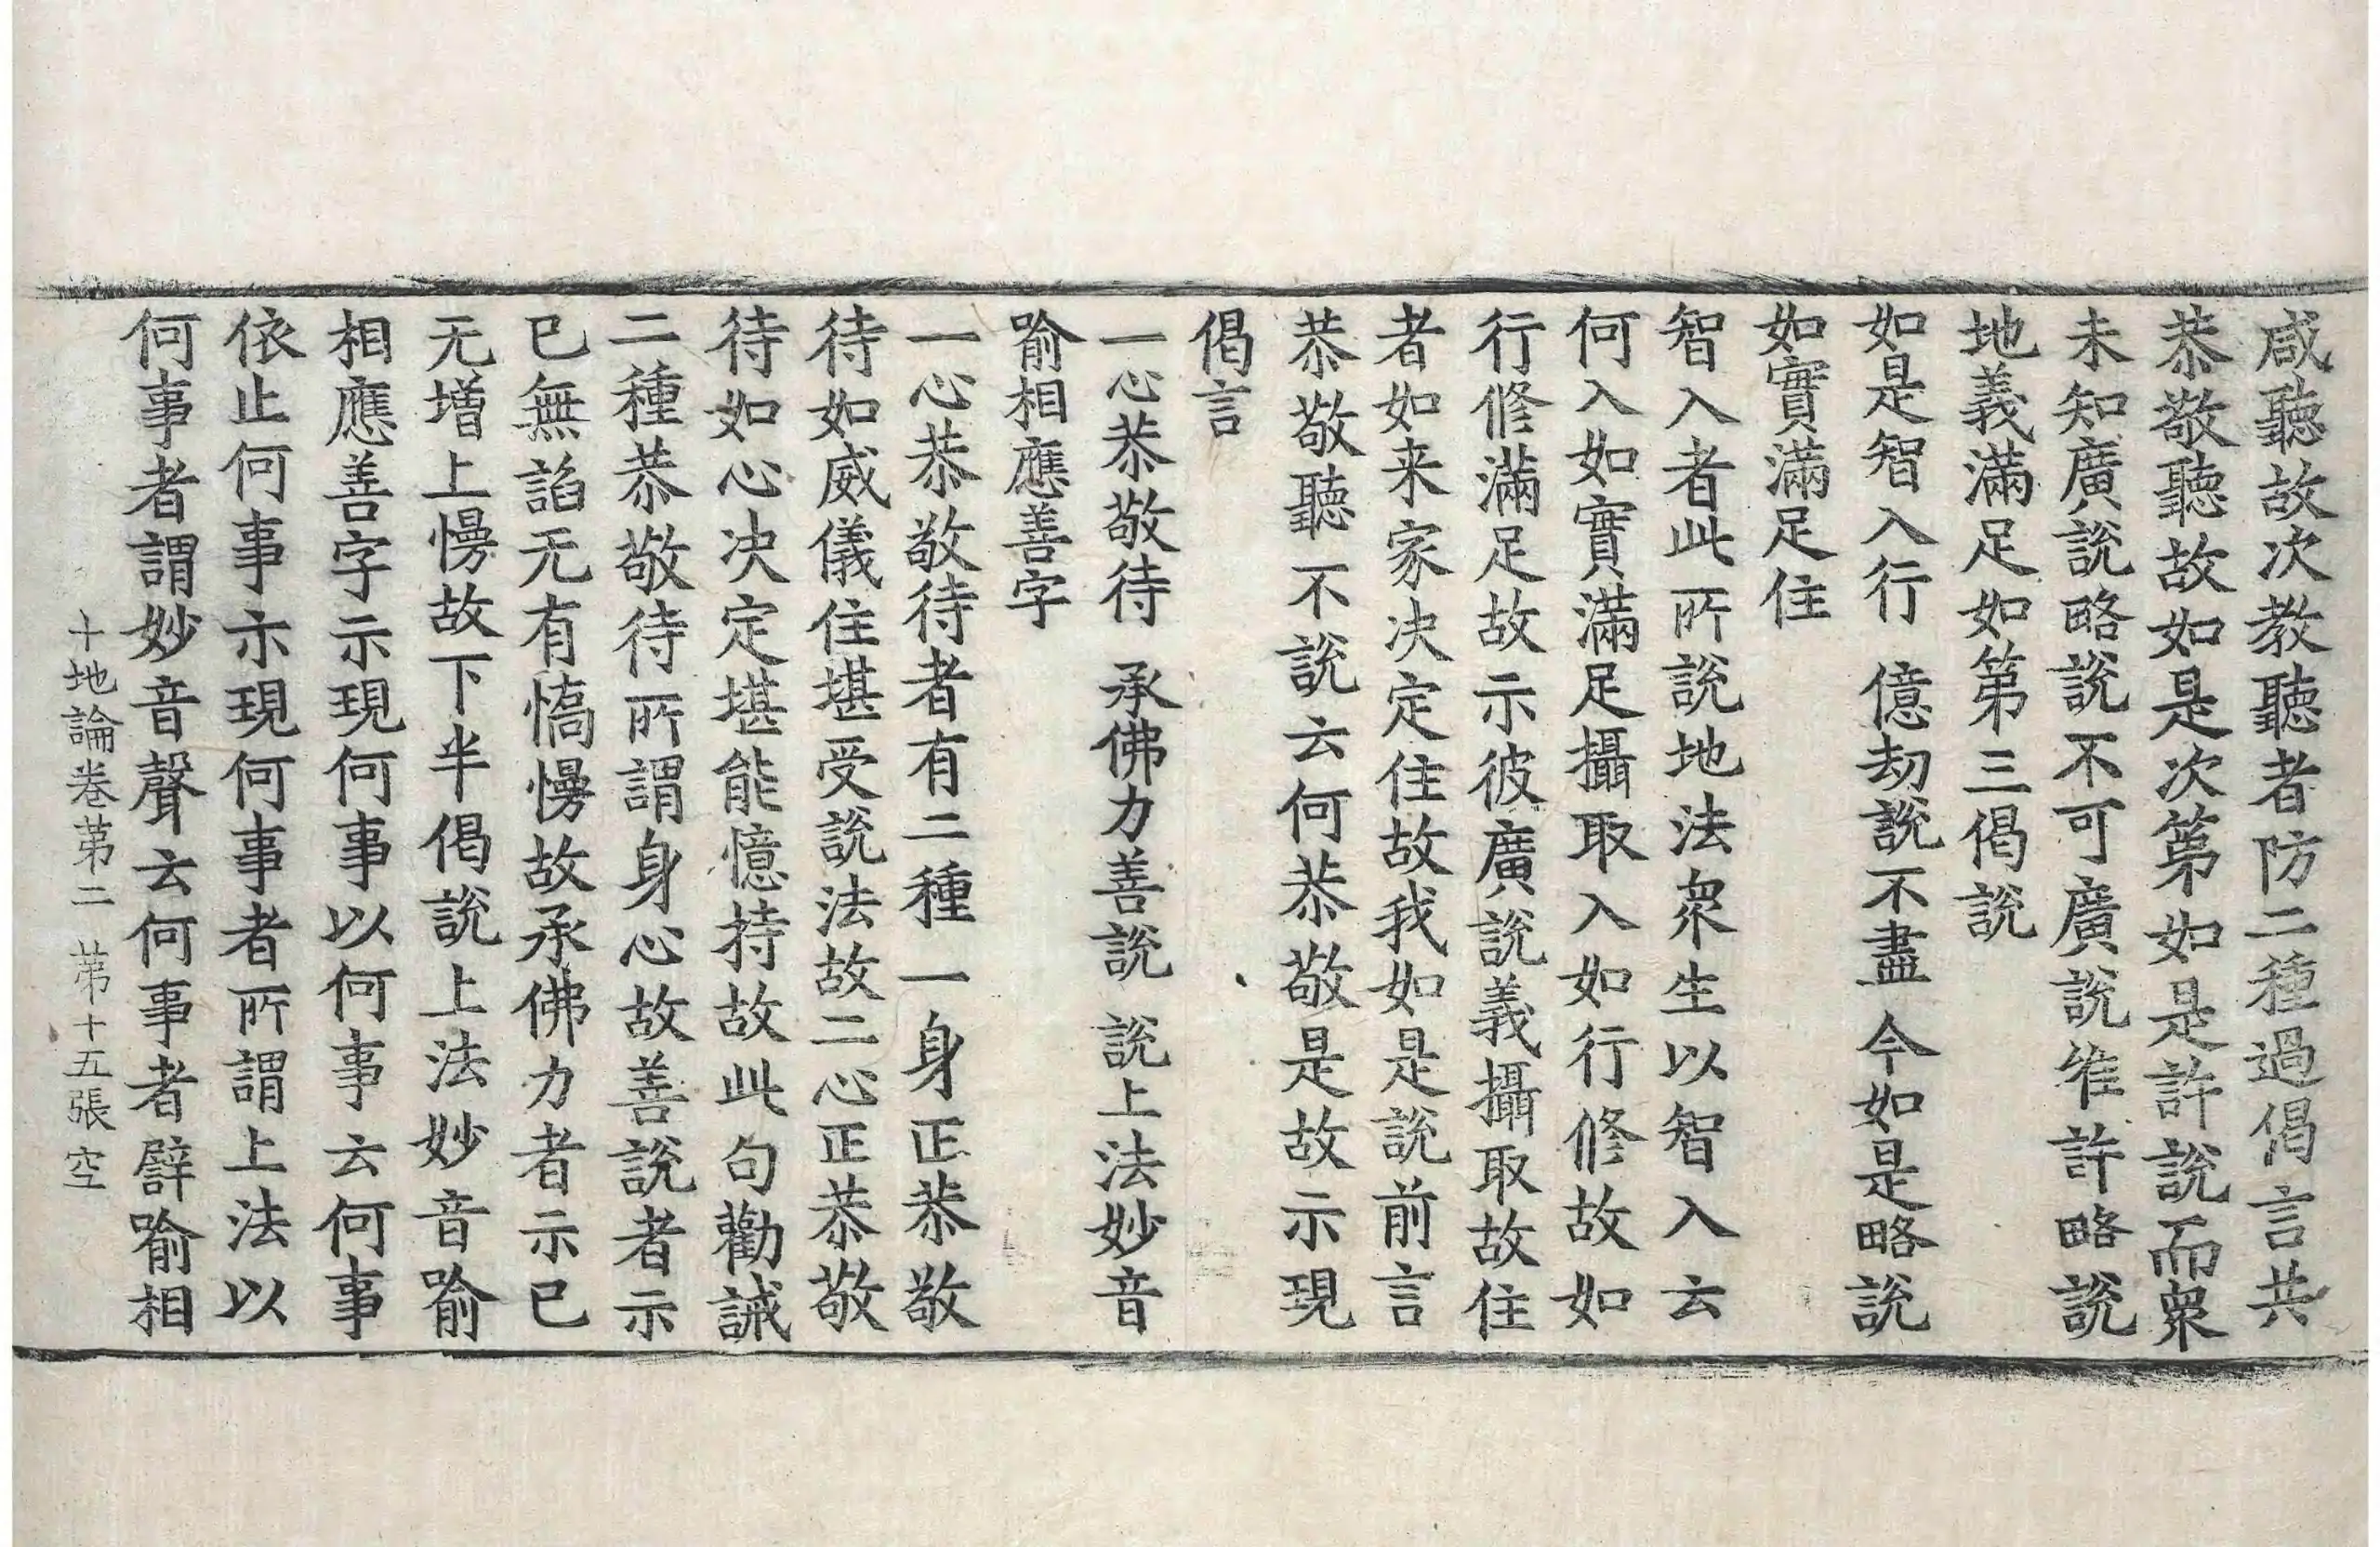 咸聽故次教聽者防二種過偈言共
恭敬聽故如是次第如是許說而衆
未知廣說略說不可廣說唯許略說
地義滿足如第三偈說
如是智入行　億劫說不盡　今如是略說
如實滿足住
智入者此所說地法衆生以智入云
何入如實滿足攝取入如行修故如
行修滿足故示彼廣說義攝取故住
者如来家决定住故我如是說前言
恭敬聽不說云何恭敬是故示現
偈言
一心恭敬待　承佛力善說　說上法妙音
喻相應善字
一心恭敬待者有二種一身正恭敬
待如威儀住堪受說法故二心正恭敬
待如心决定堪能憶持故此句勸誡
二種恭敬待所謂身心故善說者示
已無諂无有憍慢故承佛力者示已
无增上慢故下半偈說上法妙音喻
相應善字示現何事以何事云何事
依止何事示現何事者所謂上法以
何事者謂妙音聲云何事者譬喻相
十地論卷第二　第十五張　空